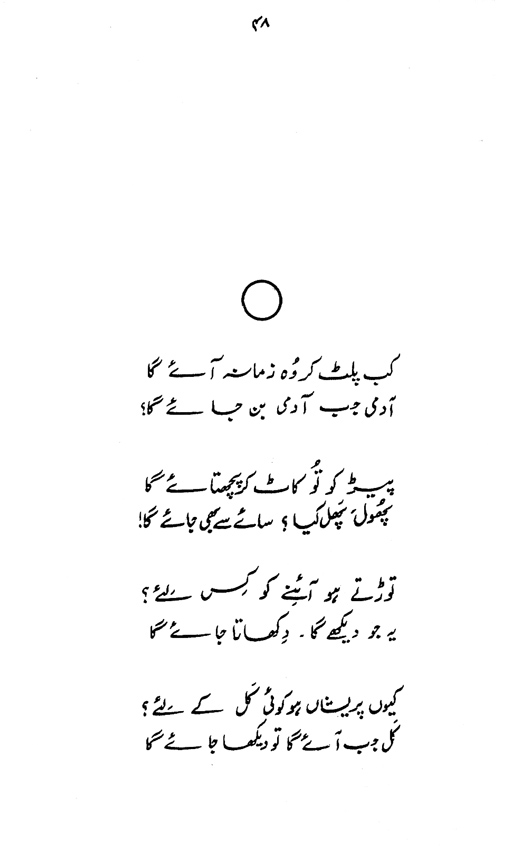 ۴۸
کب پلٹ کر وُہ زمانہ آئے گا
آدمی جب آدمی بن جائے گا؟
پیڑ کو تُو کاٹ کر پچھتائے گا
پُھول، پَھل کیا؟ سائے سے بھی جائے گا!
توڑتے ہو آئنِے کو کِس لئے؟
یہ جو دیکھے گا۔ دِکھاتا جائے گا
کیوں پریشاں ہو کوئی کَل کے لئے؟
کَل جب آئے گا تو دیکھا جائے گا